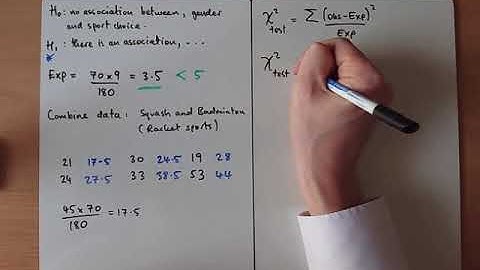 H₀: no association between, gender
and sport choice.
H₁: there is an association, ...
Exp = 70 × 9 / 180 = 3.5 < 5
Combine data: Squash and Badminton
(Racket sports)
21 17.5 30 24.5 19 28
24 27.5 33 38.5 53 44
45 × 70 / 180 = 17.5
χ² test = Σ (Obs-Exp)² / Exp
χ² test